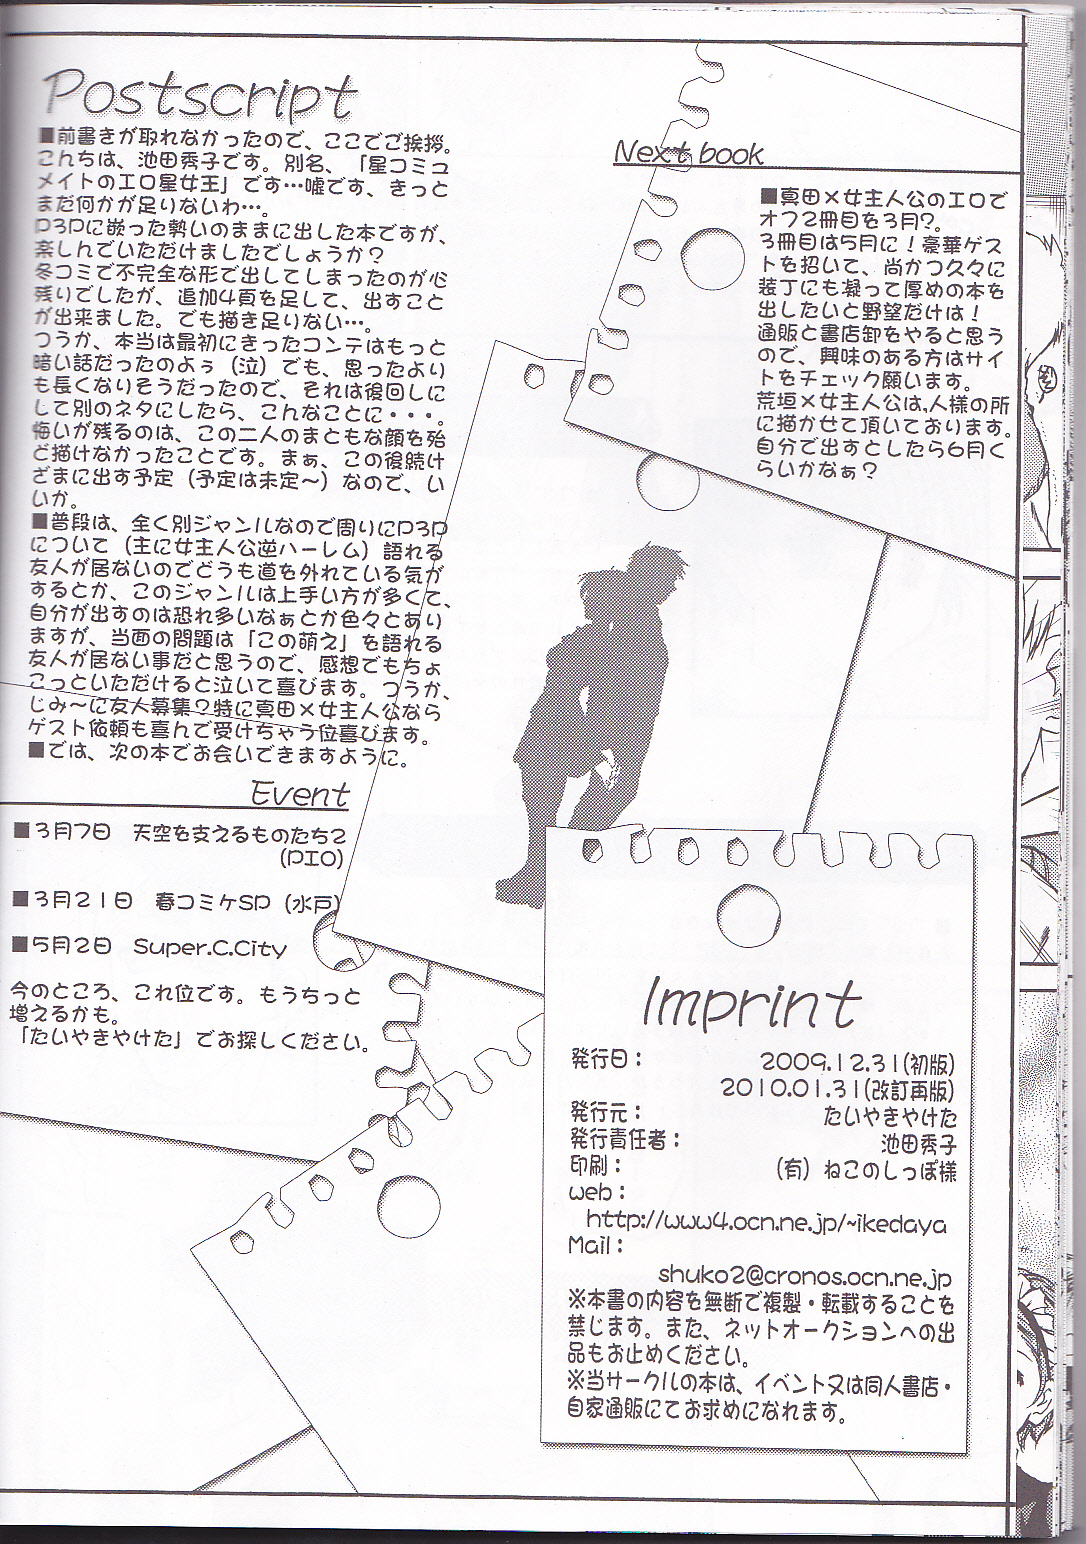 Postscript
■前書きが取れなかったので、ここでご挨拶。
こんちは、池田秀子です。別名、「星コミュ
メイトのエロ星女王」です…嘘です、きっと
まだ何かが足りないわ…。
P3Pに嵌った勢いのままに出した本ですが、
楽しんでいただけましたでしょうか？
冬コミで不完全な形で出してしまったのが心
残りでしたが、追加4頁を足して、出すこと
が出来ました。でも描き足りない…。
つうか、本当は最初にきったコンテはもっと
暗い話だったのよぅ（泣）でも、思ったより
も長くなりそうだったので、それは後回しに
して別のネタにしたら、こんなことに・・・。
悔いが残るのは、この二人のまともな顔を殆
ど描けなかったことです。まぁ、この後続け
ざまに出す予定（予定は未定～）なので、い
いか。
■普段は、全く別ジャンルなので周りにP3P
について（主に女主人公逆ハーレム）語れる
友人が居ないのでどうも道を外れている気が
するとか、このジャンルは上手い方が多くて、
自分が出すのは恐れ多いなぁとか色々とあり
ますが、当面の問題は「この萌え」を語れる
友人が居ない事だと思うので、感想でもちょ
こっといただけると泣いて喜びます。つうか、
じみ～に友人募集？特に真田×女主人公なら
ゲスト依頼も喜んで受けちゃう位喜びます。
■では、次の本でお会いできますように。
Event
■3月7日　天空を支えるものたち2
(PIO)
■3月21日　春コミケSP（水戸）
■5月2日　Super.C.City
今のところ、これ位です。もうちっと
増えるかも。
「たいやきやけた」でお探しください。
Next book
■真田×女主人公のエロで
オフ2冊目を3月？。
3冊目は5月に！豪華ゲス
トを招いて、尚かつ久々に
装丁にも凝って厚めの本を
出したいと野望だけは！
通販と書店卸をやると思う
ので、興味のある方はサイ
トをチェック願います。
荒垣×女主人公は、人様の所
に描かせて頂いております。
自分で出すとしたら6月く
らいかなぁ？
Imprint
発行日：　2009.12.31(初版)
2010.01.31(改訂再版)
発行元：　たいやきやけた
発行責任者：　池田秀子
印刷：　（有）ねこのしっぽ様
web：
http://www4.ocn.ne.jp/~ikedaya
Mail：
shuko2@cronos.ocn.ne.jp
※本書の内容を無断で複製・転載することを
禁じます。また、ネットオークションへの出
品もお止めください。
※当サークルの本は、イベント又は同人書店・
自家通販にてお求めになれます。